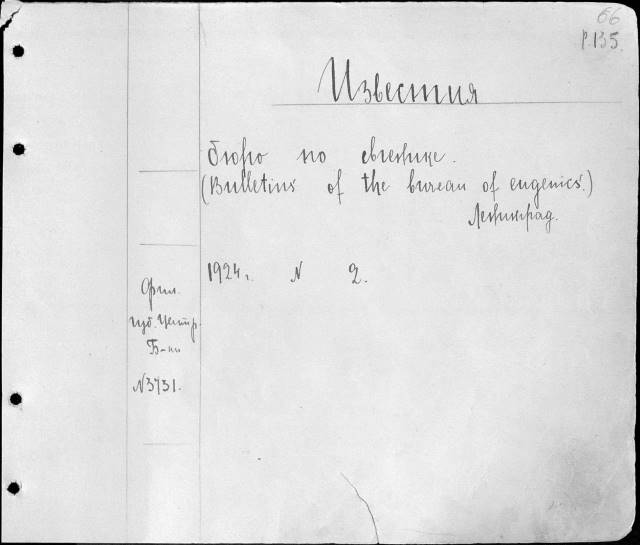 66
р.135.
Известия
бюро по евгенике.
(Bulletins of the bureau of eugenics.)
Ленинград.
1924 г. N 2.
Фил.
губ. Центр.
Б-ки
N3731.